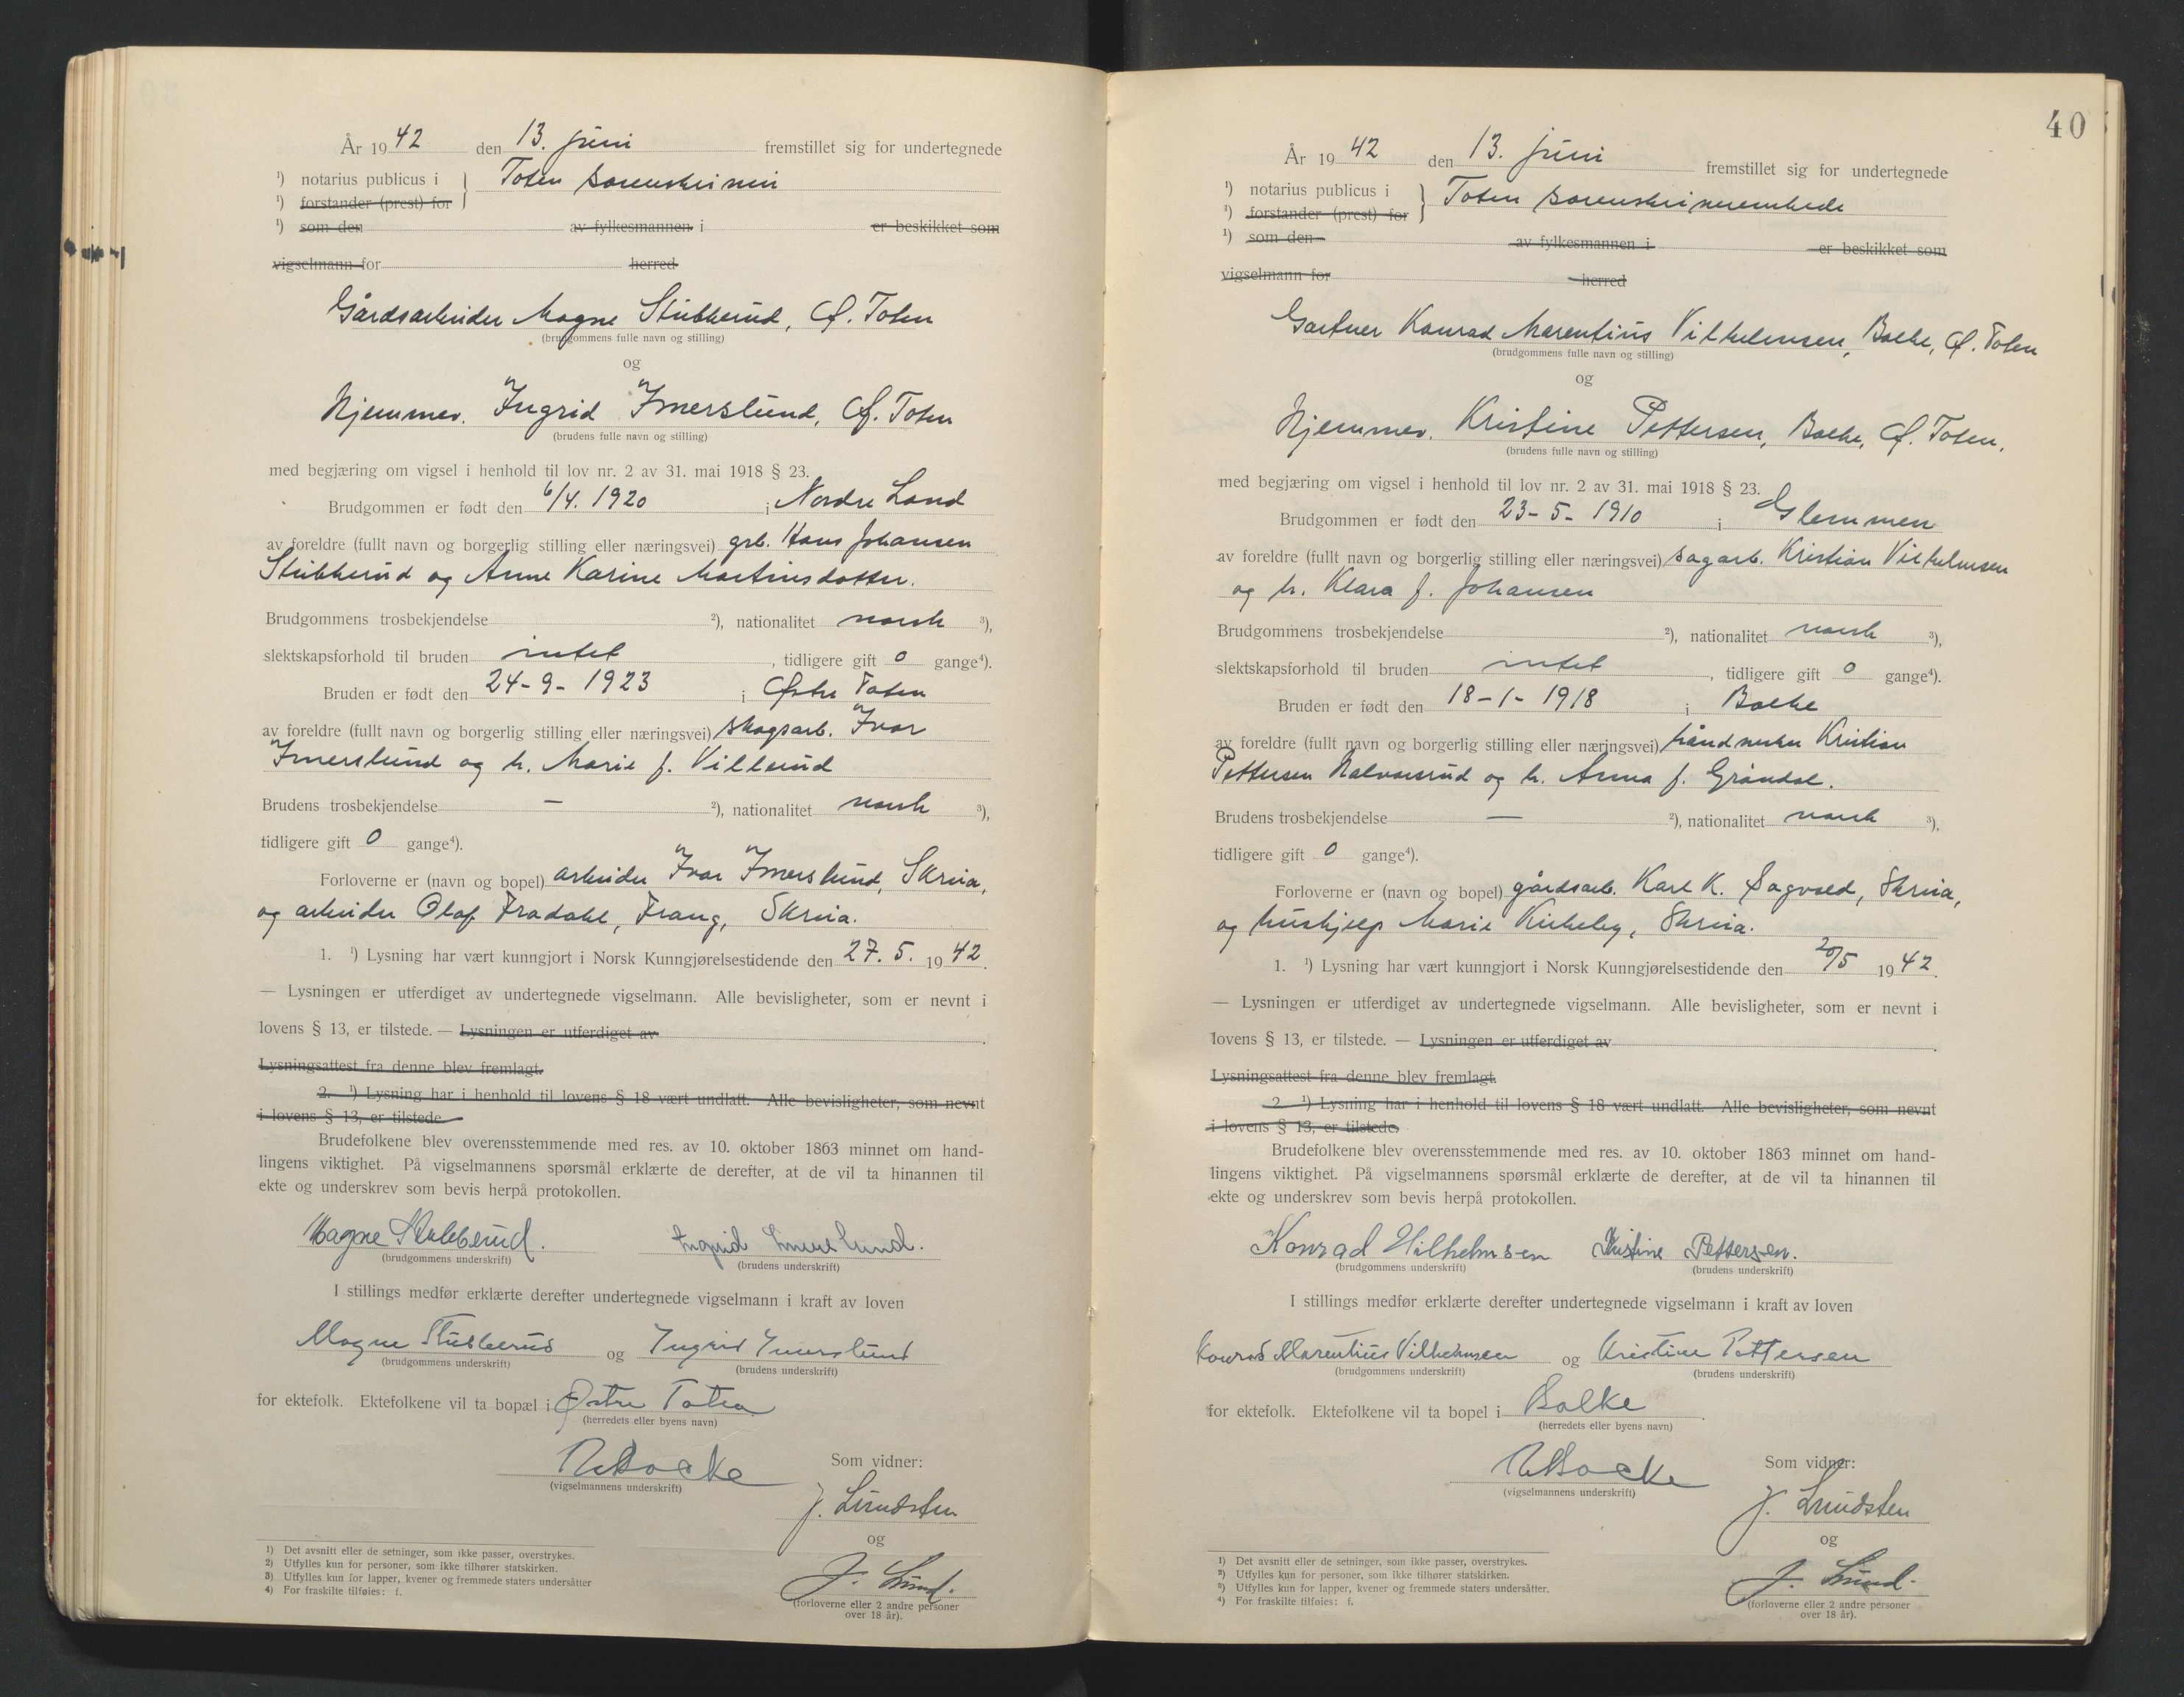 År 1942 den 13. juni fremstillet sig for undertegnede
¹) notarius publicus i } Toten sorenskriveri
¹) forstander (prest) for
¹) som den av fylkesmannen i er beskikket som
vigselmann for herred
Gårdsarbeider Magne Stubberud, Ø. Toten
(brudgommens fulle navn og stilling)
og
Hjemmev. Ingrid Imerslund, Ø. Toten
(brudens fulle navn og stilling)
med begjæring om vigsel i henhold til lov nr. 2 av 31. mai 1918 § 23.
Brudgommen er født den 6/4. 1920 i Nordre Land
av foreldre (fullt navn og borgerlig stilling eller næringsvei) grb. Hans Johansen
Stubberud og Anne Karine Martinsdotter.
Brudgommens trosbekjendelse ²), nationalitet norsk ³),
slektskapsforhold til bruden intet , tidligere gift 0 gange⁴).
Bruden er født den 24-9-1923 i Østre Toten
av foreldre (fullt navn og borgerlig stilling eller næringsvei) skogsarb. Ivar
Imerslund og h. Marie f. Villerud
Brudens trosbekjendelse — ²), nationalitet norsk ³),
tidligere gift 0 gange⁴).
Forloverne er (navn og bopel) arbeider Ivar Imerslund, Skreia,
og arbeider Olaf Fradahl, Frang, Skreia.
1. ¹) Lysning har vært kunngjort i Norsk Kunngjørelsestidende den 27. 5. 1942.
— Lysningen er utferdiget av undertegnede vigselmann. Alle bevisligheter, som er nevnt i
lovens § 13, er tilstede. — Lysningen er utferdiget av .
Lysningsattest fra denne blev fremlagt.
2. ¹) Lysning har i henhold til lovens § 18 vært undlatt. Alle bevisligheter, som nevnt
i lovens § 13, er tilstede
Brudefolkene blev overensstemmende med res. av 10. oktober 1863 minnet om hand-
lingens viktighet. På vigselmannens spørsmål erklærte de derefter, at de vil ta hinannen til
ekte og underskrev som bevis herpå protokollen.
Magne Stubberud. Ingrid Imerslund.
(brudgommens underskrift) (brudens underskrift)
I stillings medfør erklærte derefter undertegnede vigselmann i kraft av loven
Magne Stubberud og Ingrid Imerslund
(brudgommens underskrift) (brudens underskrift)
for ektefolk. Ektefolkene vil ta bopæl i Østre Toten
(herredets eller byens navn)
(vigselmannens underskrift)
Som vidner:
J. Lundsten
og
J. Lund.
(forloverne eller 2 andre personer
over 18 år).
¹) Det avsnitt eller de setninger, som ikke passer, overstrykes.
²) Utfylles kun for personer, som ikke tilhører statskirken.
³) Utfylles kun for lapper, kvener og fremmede staters undersåtter
⁴) For fraskilte tilføies: f.
40
År 1942 den 13. juni fremstillet sig for undertegnede
¹) notarius publicus i } Toten sorenskriverembede
¹) forstander (prest) for
¹) som den av fylkesmannen i er beskikket som
vigselmann for herred
Gartner Konrad Marentius Vilhelmsen, Balke, Ø. Toten
(brudgommens fulle navn og stilling)
og
Hjemmev. Kristine Pettersen, Balke, Ø. Toten.
(brudens fulle navn og stilling)
med begjæring om vigsel i henhold til lov nr. 2 av 31. mai 1918 § 23.
Brudgommen er født den 23-5-1910 i Glemmen
av foreldre (fullt navn og borgerlig stilling eller næringsvei) sagarb. Kristian Vilhelmsen
og h. Klara f. Johansen
Brudgommens trosbekjendelse ²), nationalitet norsk ³),
slektskapsforhold til bruden intet , tidligere gift 0 gange⁴).
Bruden er født den 18-1-1918 i Balke
av foreldre (fullt navn og borgerlig stilling eller næringsvei) håndverker Kristian
Pettersen Halvorsrud og h. Anna f. Grøndal.
Brudens trosbekjendelse — ²), nationalitet norsk ³),
tidligere gift 0 gange⁴).
Forloverne er (navn og bopel) gårdsarb. Karl K. Sagvold, Skreia,
og hushjelp Marie Kirkeby, Skreia.
1. ¹) Lysning har vært kunngjort i Norsk Kunngjørelsestidende den 20/5 1942.
— Lysningen er utferdiget av undertegnede vigselmann. Alle bevisligheter, som er nevnt i
lovens § 13, er tilstede. — Lysningen er utferdiget av .
Lysningsattest fra denne blev fremlagt.
2 ¹) Lysning har i henhold til lovens § 18 vært undlatt. Alle bevisligheter, som nevnt
i lovens § 13, er tilstede.
Brudefolkene blev overensstemmende med res. av 10. oktober 1863 minnet om hand-
lingens viktighet. På vigselmannens spørsmål erklærte de derefter, at de vil ta hinannen til
ekte og underskrev som bevis herpå protokollen.
Konrad Vilhelmsen Kristine Pettersen.
(brudgommens underskrift) (brudens underskrift)
I stillings medfør erklærte derefter undertegnede vigselmann i kraft av loven
Konrad Marentius Vilhelmsen og Kristine Pettersen
(brudgommens underskrift) (brudens underskrift)
for ektefolk. Ektefolkene vil ta bopel i Balke .
(herredets eller byens navn)
(vigselmannens underskrift)
Som vidner:
J. Lundsten
og
J. Lund.
(forloverne eller 2 andre personer
over 18 år).
¹) Det avsnitt eller de setninger, som ikke passer, overstrykes.
²) Utfylles kun for personer, som ikke tilhører statskirken.
³) Utfylles kun for lapper, kvener og fremmede staters undersåtter.
⁴) For fraskilte tilføies: f.